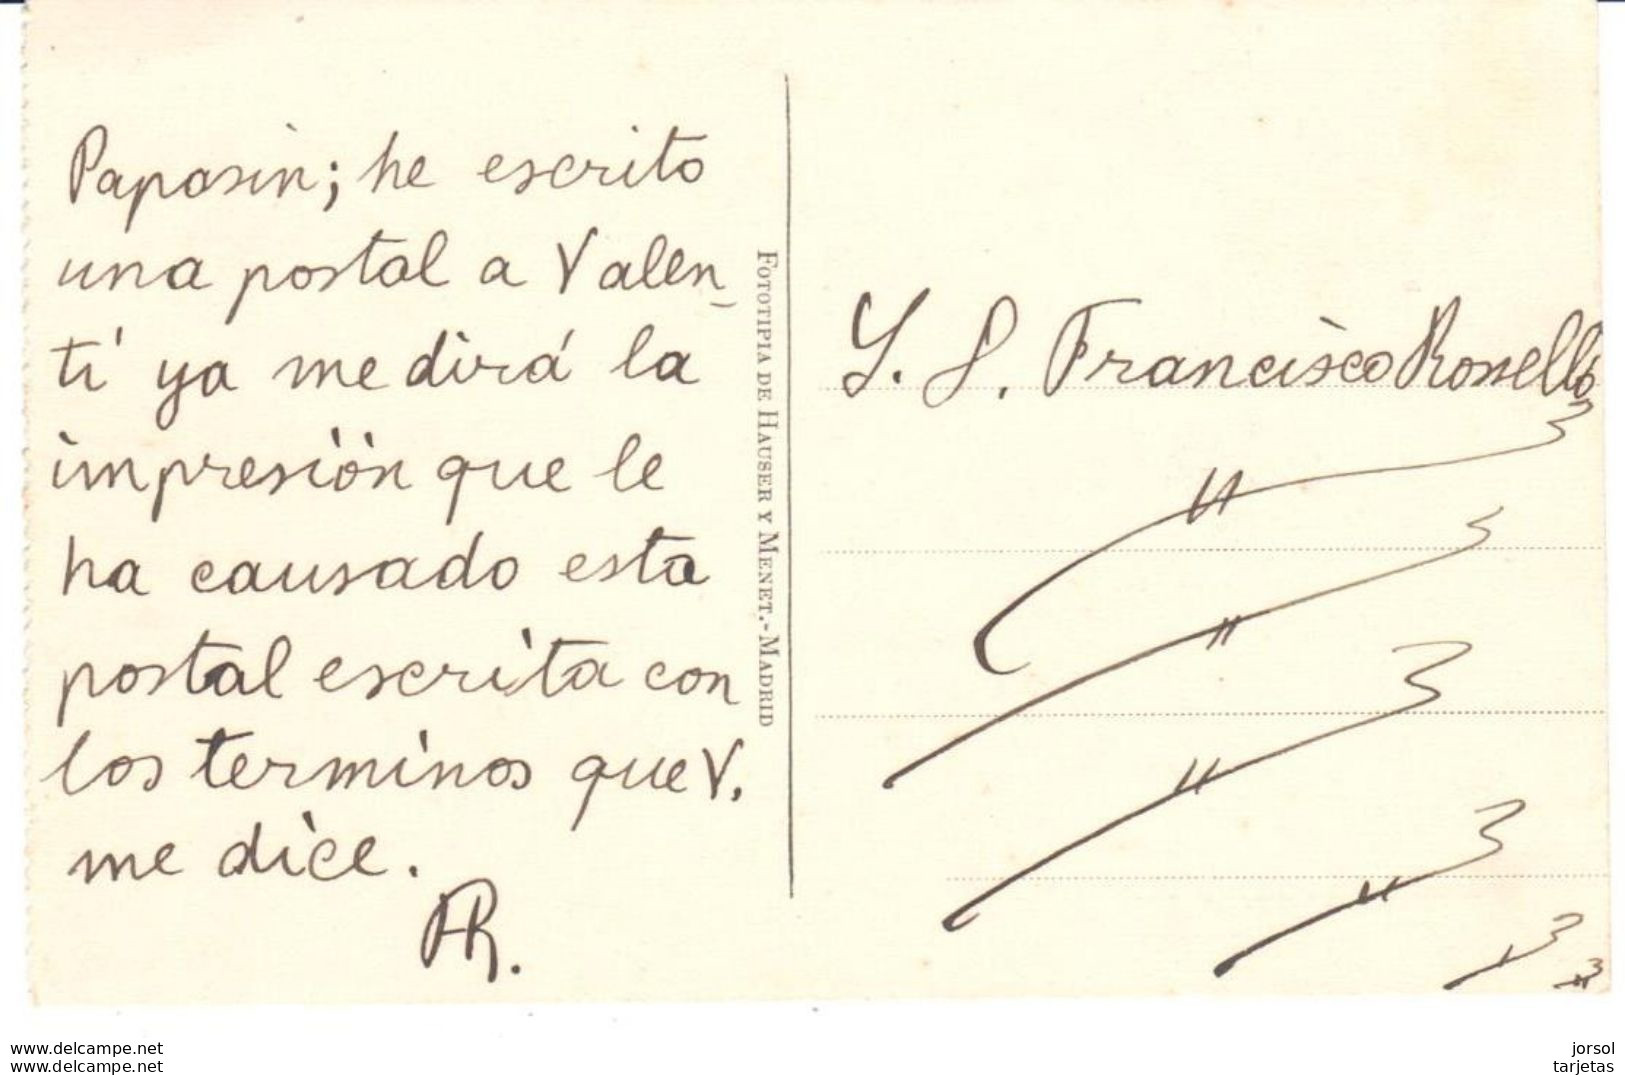 Paposin; he escrito
una postal a Valen-
tí ya me dirá la
impresión que le
ha causado esta
postal escrita con
los terminos que V.
me dice.
FR.
FOTOTIPIA DE HAUSER Y MENET.-MADRID
S. D. Francisco Rosselló
www.delcampe.net
www.delcampe.net
jorsol
tarjetas